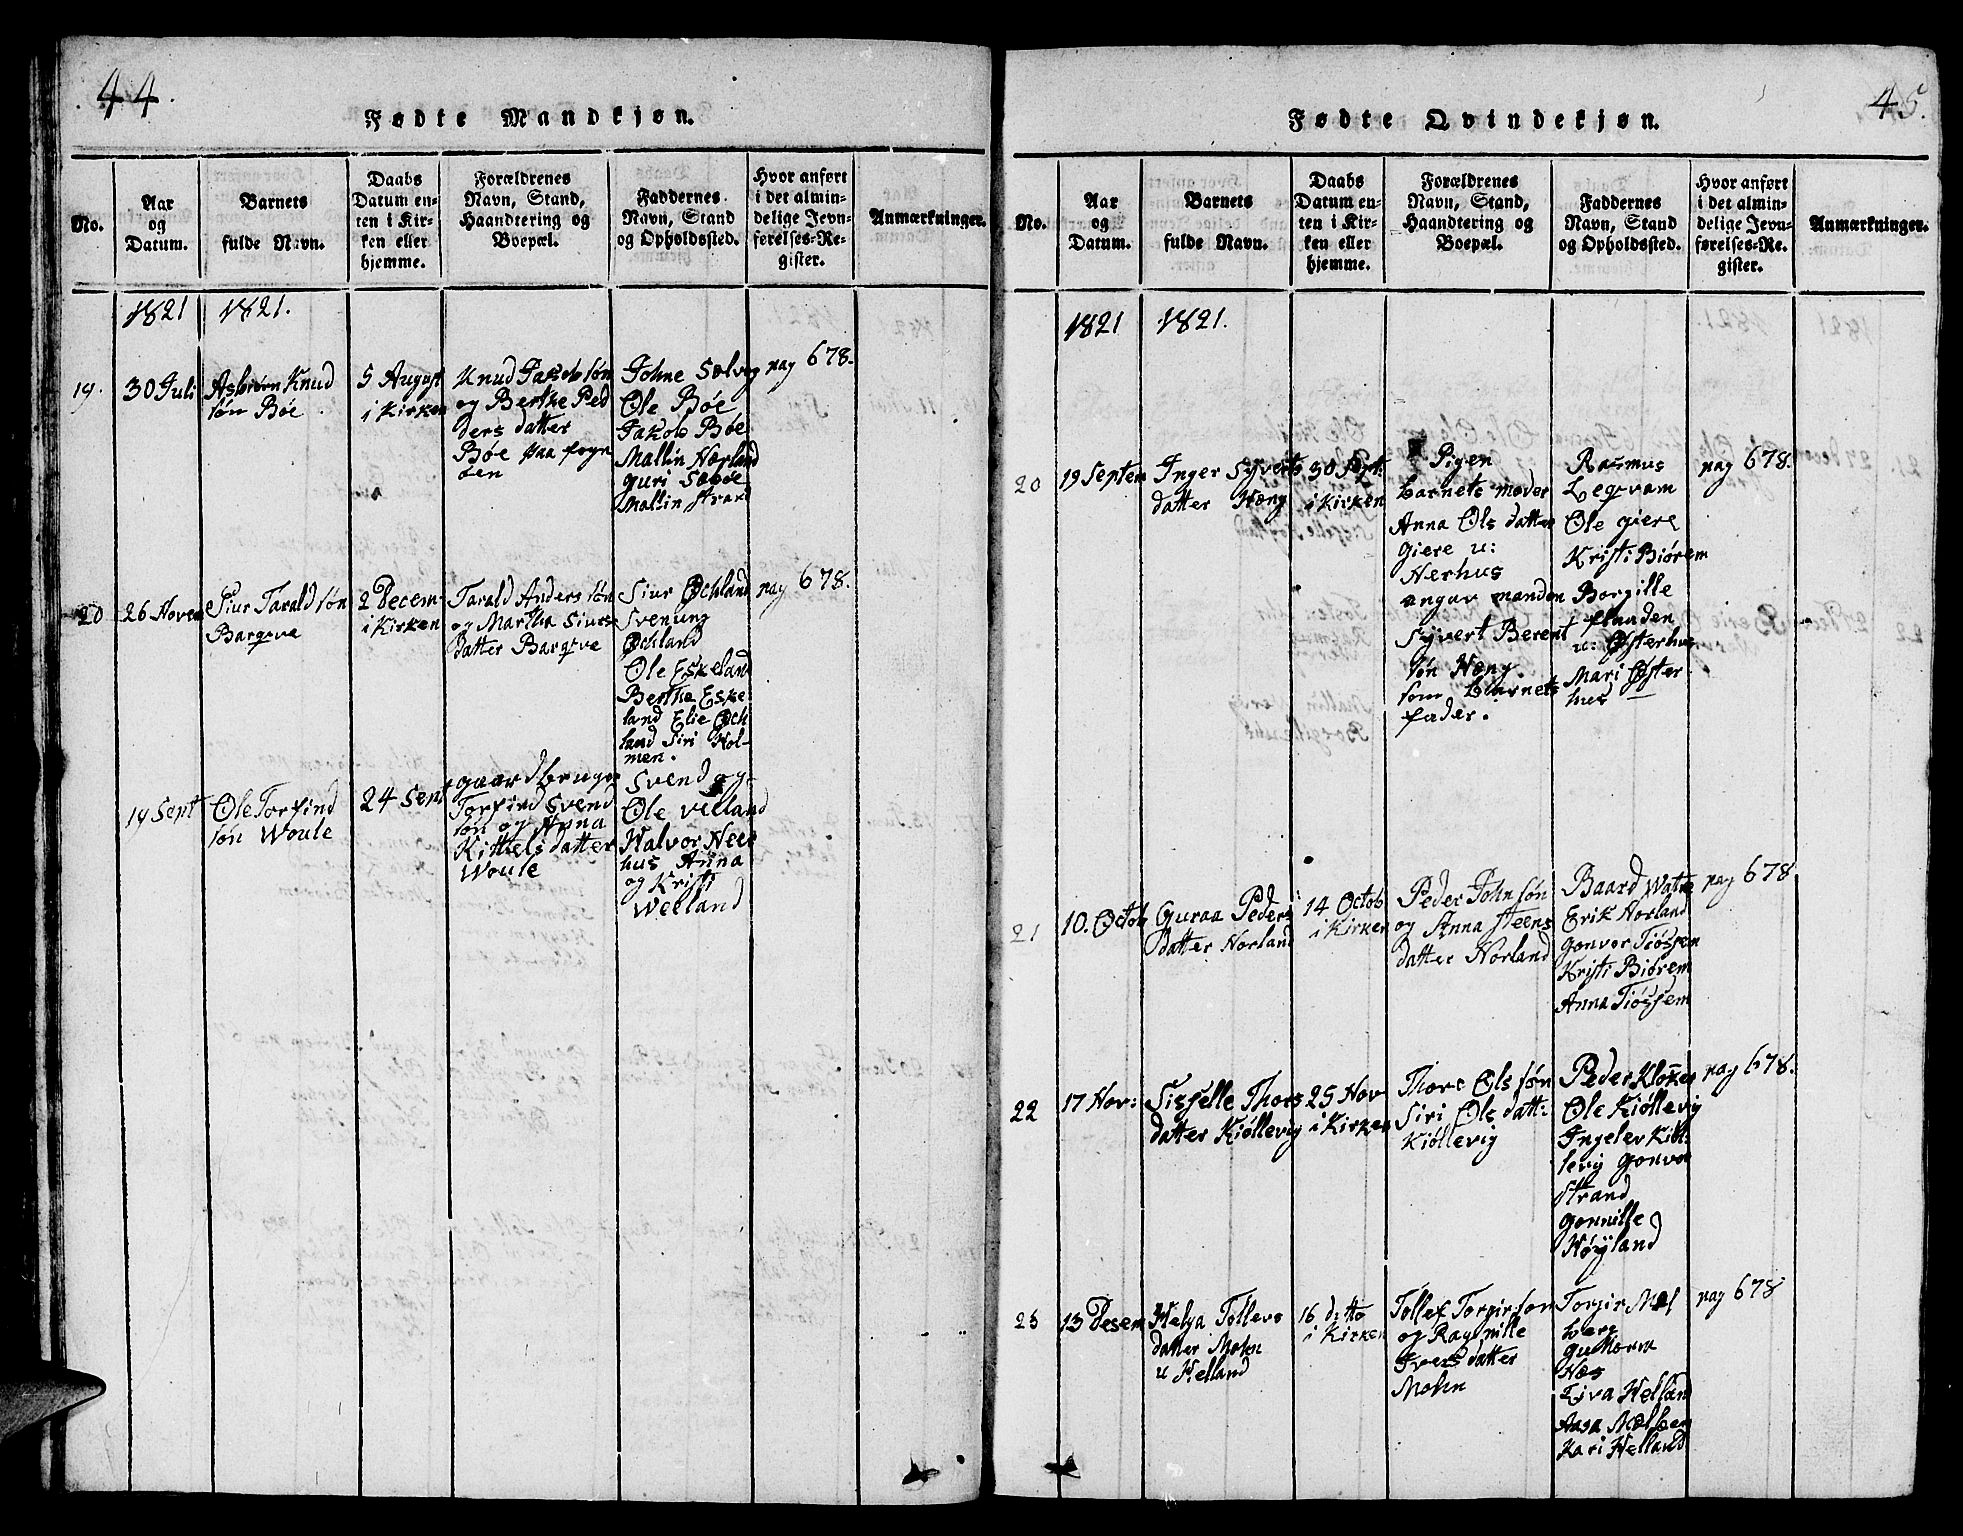 44.
Fødte Mandkjøn.
No.
Aar
og
Datum.
Barnets
fulde Navn.
Daabs
Datum en-
ten i Kir-
ken eller
hjemme.
Forældrenes
Navn, Stand,
Haandtering og
Boepæl.
Faddernes
Navn, Stand
og Opholdssted.
Hvor anført
i det almin-
delige Jevn-
førelses-Re-
gister.
Anmærkninger.
1821
1821.
19.
30 Juli
Asbiørn Knud
søn Bøe
5 August
i Kirken
Knud Jakobsøn
og Berthe Ped
ders datter
Bøe paa fogn
øen
Johne Solvig
Ole Bøe
Jakob Bøe
Mallin Norland
guri Sæbøe
Mallin strand
pag 678.
20
26 Novem
Siur Tarald søn
Bargeve
2 Decem-
i Kirken
Tarald Anders søn
og Martha Siurs
datter Bargeve
Siur Øchland
Svenung
Øchland
Ole Eskeland
Berthe Eske
land Elie Øch
land Siri Hol-
men.
pag 678.
14 Sept
Ole Torfind
søn Woule
24 Sept
gaardbruger
Torfind Svend
søn og Anna
Kittelsdatter
Woule
Svend og
Ole Velland
Halvor Neer
hus Anna
og Kristi
Welland
45.
Fødte Qvindekjøn.
No.
Aar
og
Datum.
Barnets
fulde Navn.
Daabs
Datum en-
ten i Kir-
ken eller
hjemme.
Forældrenes
Navn, Stand,
Haandtering og
Boepæl.
Faddernes
Navn, Stand
og Opholdssted.
Hvor anført
i det almin-
delige Jevn-
førelses-Re-
gister.
Anmærkninger.
1821
1821.
20
19 Septem
Inger Syverts
datter Hæng
30 Sept:
i Kirken
Pigen
barnets moder
Anna Ols datter
Giere u:
Nerhus
angav manden
Syvert Berent
søn Hæng
som barnets
fader.
Rasmus
Legvam
Ole giere
Kristi Biørem
Borgille
flaaden
u: Østerhus
Mari Øster
hus
pag 678.
21
10. Octob
Guraa Peders
datter Norland
14 Octob
i Kirken
Peder Johnsøn
og Anna Steens
datter Norland
Baard Watne
Erik Norland
gonvor Tiøssem
Kristi Biørem
Anna Tiøssem
pag 678
22
17 Nov:
Sisselle Thors
datter Kiøllevig
25 Nov
i Kirken
Thore Ols søn
Siri Ols datt:
Kiøllevig
Peder Kloker
Ole Kiøllevig
Ingelev Kiøl
levig gonvor
Strand
gonnille
Høyland
pag 678.
23
13 Desem
Helga Tollevs
datter Mohn
u Helland
16 ditto
i Kirken
Tollef Torgirsøn
og Ragnille
Ivers datter
Mohn
Torgir Mel
berg
guttorm
Næs
Eiva Helland
Aasa Melberg
Kari Helland
pag 678